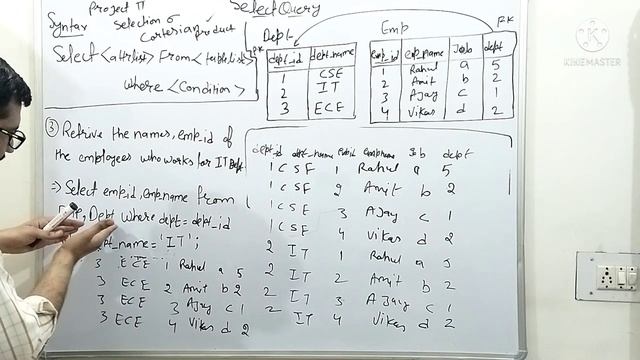 Select Query
Project π
Selection σ
Syntax
Cartesian product
Select <attrlist> From <tablelist>
where <Condition>
Dept
PK
dept_id dept_name
1 CSE
2 IT
3 ECE
Emp
FK
emp_id emp_name Job dept
1 Rahul a 5
2 Amit b 2
3 Ajay c 1
4 Vikas d 2
KINEMASTER
③ Retrive the names, emp_id of
the employees who works for IT Dept
⇒ Select emp_id, emp_name from
Dept where dept=dept_id
dept_name='IT';
3 ECE 1 Rahul a 5
3 ECE 2 Amit b 2
3 ECE 3 Ajay c 1
3 ECE 4 Vikas d 2
dept_id dept_name empid empname Job dept
1 CSE 1 Rahul a 5
1 CSE 2 Amit b 2
1 CSE 3 Ajay c 1
1 CSE 4 Vikas d 2
2 IT 1 Rahul a 5
2 IT 2 Amit b 2
2 IT 3 Ajay c 1
2 IT 4 Vikas d 2